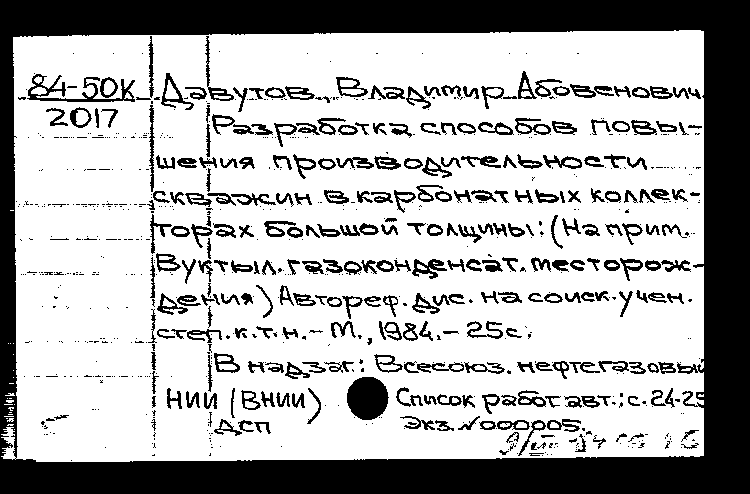 84-50К Давутов, Владимир Абовенович.
2017
Разработка способов повы-
шения производительности
скважин в карбонатных коллек-
торах большой толщины: (На прим.
Вуктыл. газоконденсат. месторож-
дения) Автореф. дис. на соиск. учен.
степ. к.т.н. - М., 1984. - 25с.
В надзаг.: Всесоюз. нефтегазовый
НИИ (ВНИИ) Список работ авт.: с. 24-25
ДСП Экз. №000005.